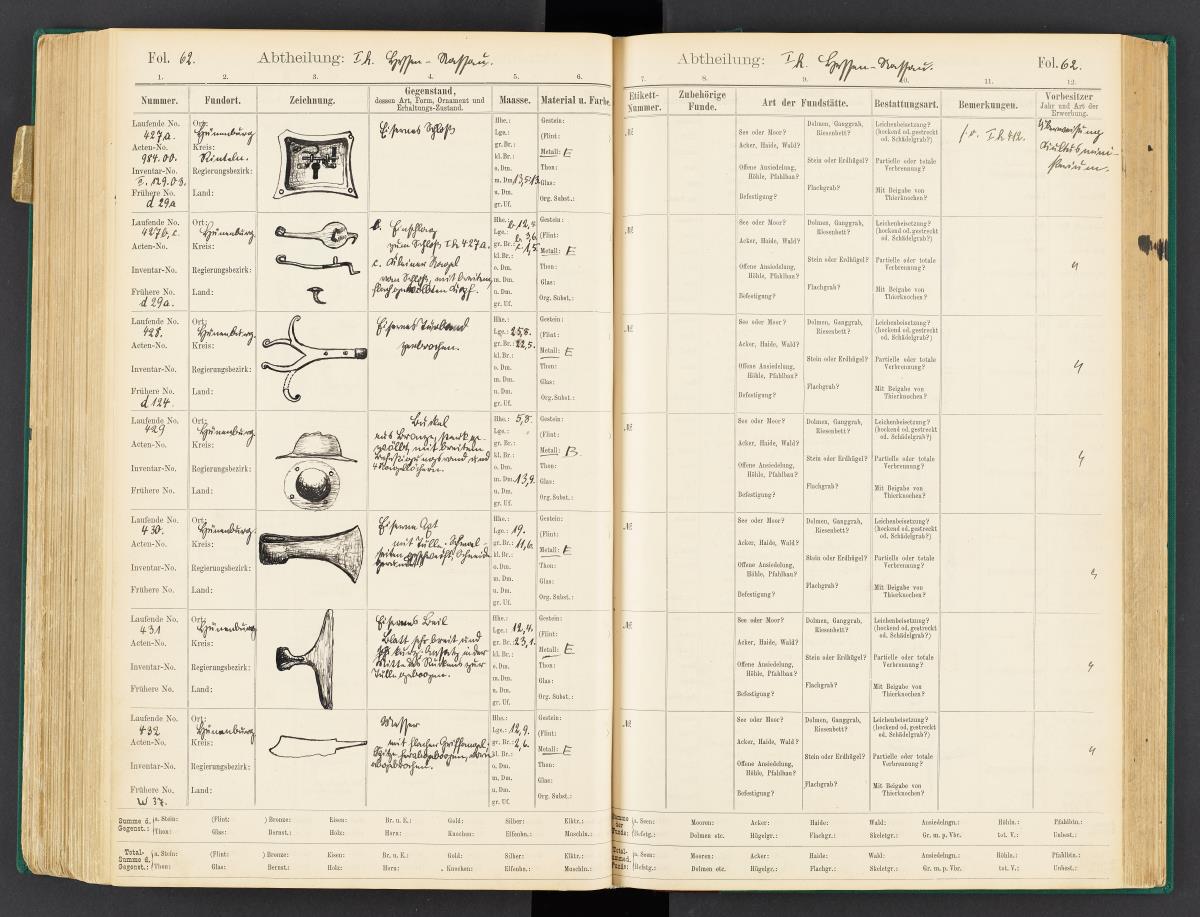 Fol. 62. Abtheilung: I h. Hessen-Nassau.
1. 2. 3. 4. 5. 6.
Nummer. Fundort. Zeichnung. Gegenstand, dessen Art, Form, Ornament und Erhaltungs-Zustand. Maasse. Material u. Farbe.
Laufende No. 427a.
Acten-No. 984.00.
Inventar-No. II. 129.03.
Frühere No. d 29a
Ort: Hünenburg
Kreis: Rinteln.
Regierungsbezirk:
Land:
Eisernes Schloß
Hhe.:
Lge.:
gr. Br.:
kl. Br.:
o. Dm.
m. Dm. 13,5:13.
u. Dm.
gr. Uf.
Gestein:
(Flint: )
Metall: E
Thon:
Glas:
Org. Subst.:
Laufende No. 427b,c.
Acten-No.
Inventar-No.
Frühere No. d 29a.
Ort: Hünenburg.
Kreis:
Regierungsbezirk:
Land:
b. Einschlag
zum Schloß I h 427a.
c. Kleiner Nagel
vom Schloß, mit breitem,
flach gewölbten Kopf.
Hhe.: b. 12,4.
Lge.: b. 3,6.
gr. Br.: c. 1,5.
kl. Br.:
o. Dm.
m. Dm.
u. Dm.
gr. Uf.
Gestein:
(Flint: )
Metall: E
Thon:
Glas:
Org. Subst.:
Laufende No. 428.
Acten-No.
Inventar-No.
Frühere No. d 124.
Ort: Hünenburg.
Kreis:
Regierungsbezirk:
Land:
Eisernes Türband
zerbrochen.
Hhe.:
Lge.: 25,8.
gr. Br.: 22,5.
kl. Br.:
o. Dm.
m. Dm.
u. Dm.
gr. Uf.
Gestein:
(Flint: )
Metall: E
Thon:
Glas:
Org. Subst.:
Laufende No. 429
Acten-No.
Inventar-No.
Frühere No.
Ort: Hünenburg.
Kreis:
Regierungsbezirk:
Land:
Buckel
aus Bronze, stark ge-
wölbt, mit breitem
Befestigungsrand und
4 Nagellöchern.
Hhe.: 5,8.
Lge.:
gr. Br.:
kl. Br.:
o. Dm.
m. Dm. 13,9.
u. Dm.
gr. Uf.
Gestein:
(Flint: )
Metall: B.
Thon:
Glas:
Org. Subst.:
Laufende No. 430.
Acten-No.
Inventar-No.
Frühere No.
Ort: Hünenburg.
Kreis:
Regierungsbezirk:
Land:
Eiserne Axt
mit Tülle. Schmal-
seiten geschweift, Schneide
Hhe.:
Lge.: 19.
gr. Br.: 11,6.
kl. Br.:
o. Dm.
m. Dm.
u. Dm.
gr. Uf.
Gestein:
(Flint: )
Metall: E
Thon:
Glas:
Org. Subst.:
Laufende No. 431
Acten-No.
Inventar-No.
Frühere No.
Ort: Hünenburg
Kreis:
Regierungsbezirk:
Land:
Eisernes Beil
Blatt sehr breit und
sehr kurz. Ansatz in der
Mitte des Rückens zur
Tülle gebogen.
Hhe.:
Lge.: 12,4.
gr. Br.: 23,1.
kl. Br.:
o. Dm.
m. Dm.
u. Dm.
gr. Uf.
Gestein:
(Flint: )
Metall: E
Thon:
Glas:
Org. Subst.:
Laufende No. 432
Acten-No.
Inventar-No.
Frühere No. W 37.
Ort: Hünenburg
Kreis:
Regierungsbezirk:
Land:
Messer
mit flacher Griffangel,
Spitze herabgebogen, vorn
abgebrochen.
Hhe.:
Lge.: 12,9.
gr. Br.: 2,6.
kl. Br.:
o. Dm.
m. Dm.
u. Dm.
gr. Uf.
Gestein:
(Flint: )
Metall: E
Thon:
Glas:
Org. Subst.:
Summe d. Gegenst.: a. Stein: (Flint: ) Bronze: Eisen: Br. u. E.: Gold: Silber: Elktr.:
Thon: Glas: Bernst.: Holz: Horn: Knochen: Elfenbn.: Muschln.:
Total-Summe d. Gegenst.: a. Stein: (Flint: ) Bronze: Eisen: Br. u. E.: Gold: Silber: Elktr.:
Thon: Glas: Bernst.: Holz: Horn: Knochen: Elfenbn.: Muschln.:
Abtheilung: I h. Hessen-Nassau. Fol. 62.
7. 8. 9. 10. 11. 12.
Etikett-Nummer. Zubehörige Funde. Art der Fundstätte. Bestattungsart. Bemerkungen. Vorbesitzer Jahr und Art der Erwerbung.
No.
See oder Moor?
Acker, Haide, Wald?
Offene Ansiedelung, Höhle, Pfahlbau?
Befestigung?
Dolmen, Ganggrab, Riesenbett?
Stein oder Erdhügel?
Flachgrab?
Leichenbeisetzung?
(hockend od. gestreckt
od. Schädelgrab?)
Partielle oder totale Verbrennung?
Mit Beigabe von Thierknochen?
s. o. I h 412.
Überweisung
Kultusmini-
sterium.
No.
See oder Moor?
Acker, Haide, Wald?
Offene Ansiedelung, Höhle, Pfahlbau?
Befestigung?
Dolmen, Ganggrab, Riesenbett?
Stein oder Erdhügel?
Flachgrab?
Leichenbeisetzung?
(hockend od. gestreckt
od. Schädelgrab?)
Partielle oder totale Verbrennung?
Mit Beigabe von Thierknochen?
"
No.
See oder Moor?
Acker, Haide, Wald?
Offene Ansiedelung, Höhle, Pfahlbau?
Befestigung?
Dolmen, Ganggrab, Riesenbett?
Stein oder Erdhügel?
Flachgrab?
Leichenbeisetzung?
(hockend od. gestreckt
od. Schädelgrab?)
Partielle oder totale Verbrennung?
Mit Beigabe von Thierknochen?
"
No.
See oder Moor?
Acker, Haide, Wald?
Offene Ansiedelung, Höhle, Pfahlbau?
Befestigung?
Dolmen, Ganggrab, Riesenbett?
Stein oder Erdhügel?
Flachgrab?
Leichenbeisetzung?
(hockend od. gestreckt
od. Schädelgrab?)
Partielle oder totale Verbrennung?
Mit Beigabe von Thierknochen?
"
No.
See oder Moor?
Acker, Haide, Wald?
Offene Ansiedelung, Höhle, Pfahlbau?
Befestigung?
Dolmen, Ganggrab, Riesenbett?
Stein oder Erdhügel?
Flachgrab?
Leichenbeisetzung?
(hockend od. gestreckt
od. Schädelgrab?)
Partielle oder totale Verbrennung?
Mit Beigabe von Thierknochen?
"
No.
See oder Moor?
Acker, Haide, Wald?
Offene Ansiedelung, Höhle, Pfahlbau?
Befestigung?
Dolmen, Ganggrab, Riesenbett?
Stein oder Erdhügel?
Flachgrab?
Leichenbeisetzung?
(hockend od. gestreckt
od. Schädelgrab?)
Partielle oder totale Verbrennung?
Mit Beigabe von Thierknochen?
"
No.
See oder Moor?
Acker, Haide, Wald?
Offene Ansiedelung, Höhle, Pfahlbau?
Befestigung?
Dolmen, Ganggrab, Riesenbett?
Stein oder Erdhügel?
Flachgrab?
Leichenbeisetzung?
(hockend od. gestreckt
od. Schädelgrab?)
Partielle oder totale Verbrennung?
Mit Beigabe von Thierknochen?
"
Summe der Funde: a. Seen: Mooren: Acker: Haide: Wald: Ansiedelngn.: Höhln.: Pfahlbtn.:
Befstg.: Dolmen etc. Hügelgr.: Flachgr.: Skeletgr.: Gr. m. p. Vbr. tot. V.: Unbest.:
Total-Summe d. Funde: a. Seen: Mooren: Acker: Haide: Wald: Ansiedelngn.: Höhln.: Pfahlbtn.:
Befstg.: Dolmen etc. Hügelgr.: Flachgr.: Skeletgr.: Gr. m. p. Vbr. tot. V.: Unbest.: